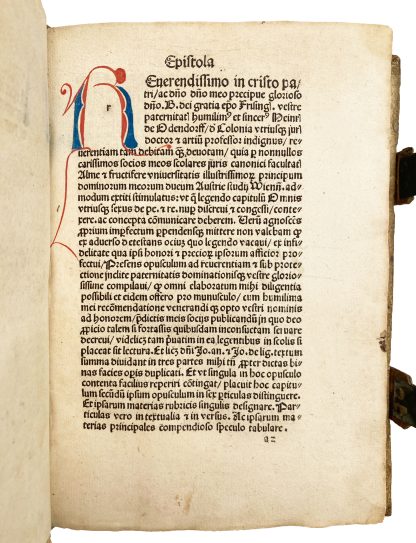 Epistola
r
Euerendissimo in cristo pa-
tri/ac dño dño meo precipue glorioso
dño. B. dei gratia epo Frising. vestre
paternitatꝭ humilimꝰ et sincerꝰ Heinr̄
de Odendorff/ d̓ Colonia vtriusqꝫ jurꝭ
doctor ꞇ artiū professor indignus/ re-
uerentiam tam debitam qꝫ deuotam/ quia p̱ nonnullos
carissimos socios meos scolares juris canonici facultatꝭ
Alme ꞇ fructifere vniuersitatꝭ illustrissimoꝝ principum
dominorum meorum ducum Austrie studij Wienn̄. ad-
modum extiti stimulatus: vt q̄ legendo capitulū Omnis
vtriusqꝫ sexus de pe. ꞇ re. nup̱ discreui ꞇ congessi/ conte-
xere. ac concepta cōmunicare deberem. Verū agnoscēs
ꝓprium imp̱fectum p̱pendensqꝫ mittere non valebam qꝫ
ex aduerso detestans ociuꝫ quo legendo vacaui/ ex infi-
delitate qua ip̄s honori ꞇ precioꝫ ipsorum afficior pro-
fectui/ Presens opusculum ad reuerentiam ꞇ sub prote-
ctione jndite paternitatis dominationisqꝫ vestre glorio-
sissime compilaui/ qꝫ omni elaboratum mihi diligentia
possibili et eidem offero pro munusculo/ cum humilima
mei recōmendatione venerandi qꝫ opto vestri nominis
ad honorem/ p̄dictis meis socijs publicandū jn quo deo
ꝓpicio talem si fortassis quibusdam inconsuetam seruare
decreui/ videlicꝫ tam p̄uatim in ea legentibus in scolis si
placeat sit lectura. Et licꝫ dn̄i Jo. an. ꞇ Jo. de lig. textum
summa diuidant in tres partes mihi tn̄ ꝓpter dictas bi-
nas facies opis duplicati. Et vt singula in hoc opusculo
contenta facilius reperiri cōtingat/ placuit hoc capitu-
lum secūdū ipsum opusculum in sex ꝑticulas distinguere.
Et ipsarum materias rubricis singulis designare. Par-
ticulas vero in textualia ꞇ in versus. Ac ipsarum ma-
terias principales compendioso speculo tabulare.
a2